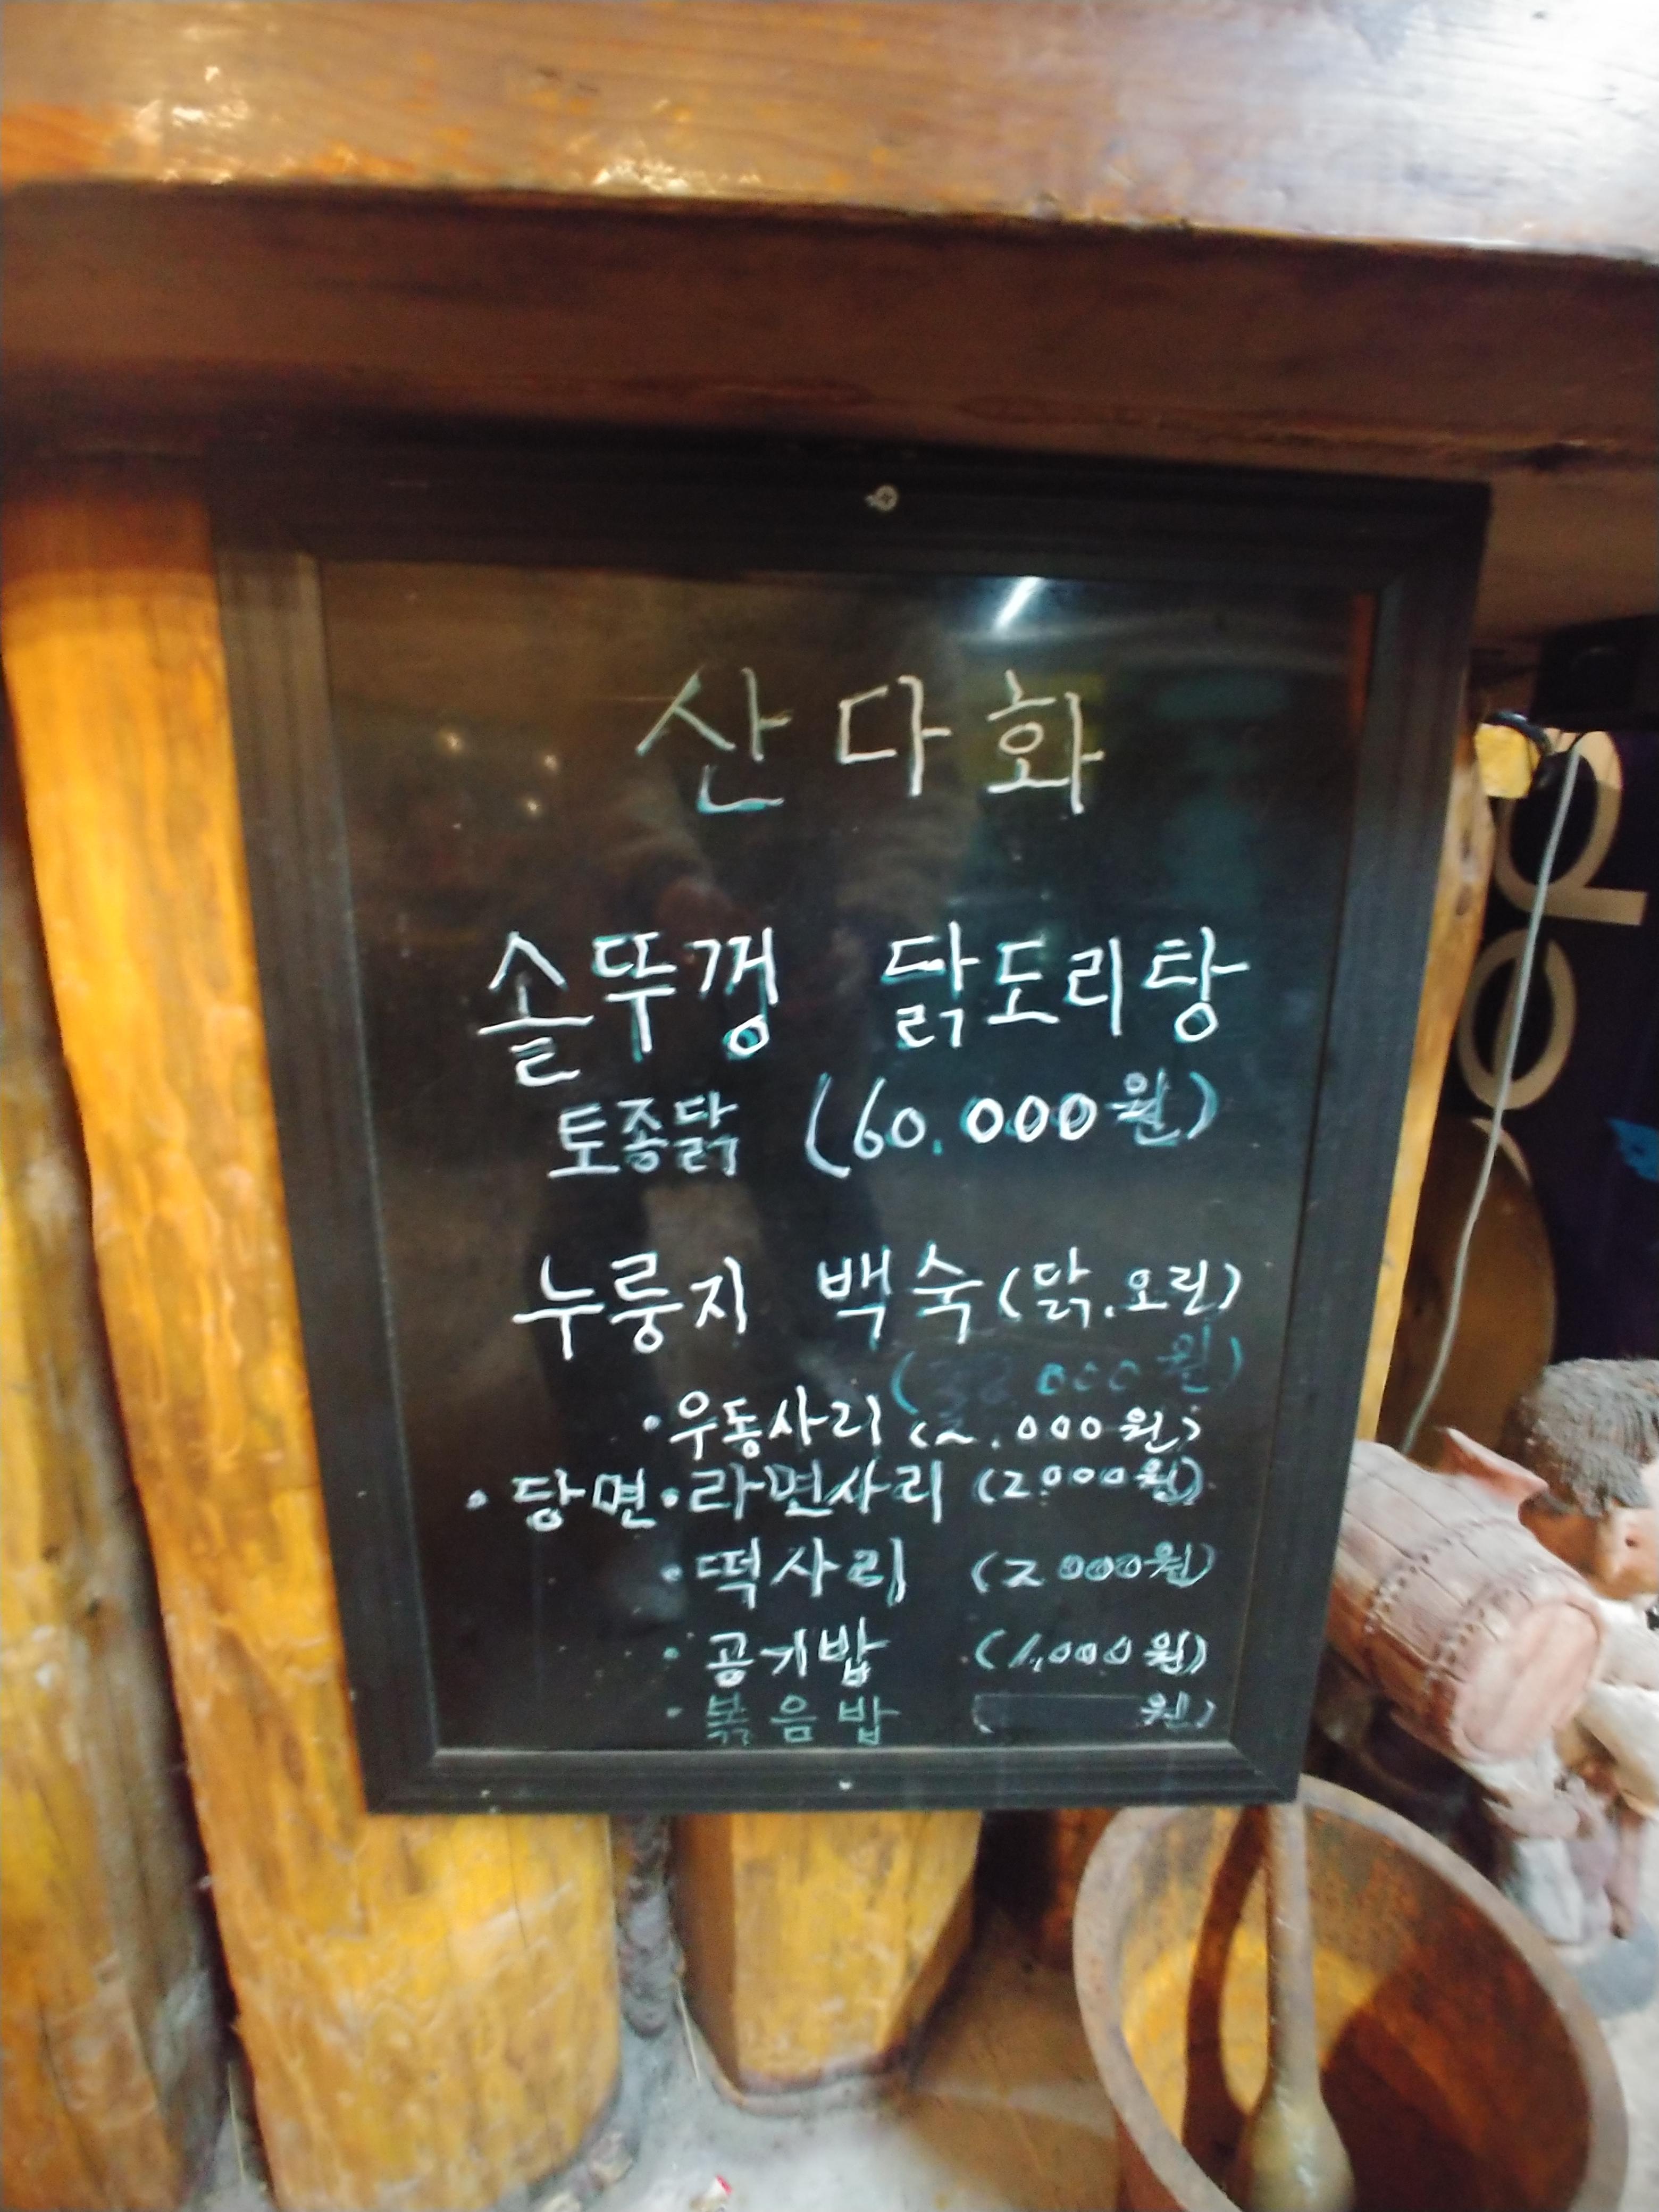 산다화
솥뚜껑 닭도리탕
토종닭 (60.000원)
누룽지 백숙(닭.오리)
000원)
·우동사리 (2.000원)
·당면·라면사리 (2000원)
·떡사리 (2000원)
·공기밥 (1,000원)
·볶음밥 ( 원)